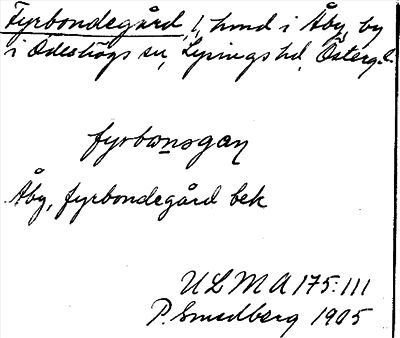 Fyrbondegård, 1, hmd i Åby, by
i Ödeshögs sn, Lysings hd,Österg.l.
fyrbonsgaṇ
Åby, fyrbondegård bek
ULMA 175:111
P. Smedberg 1905